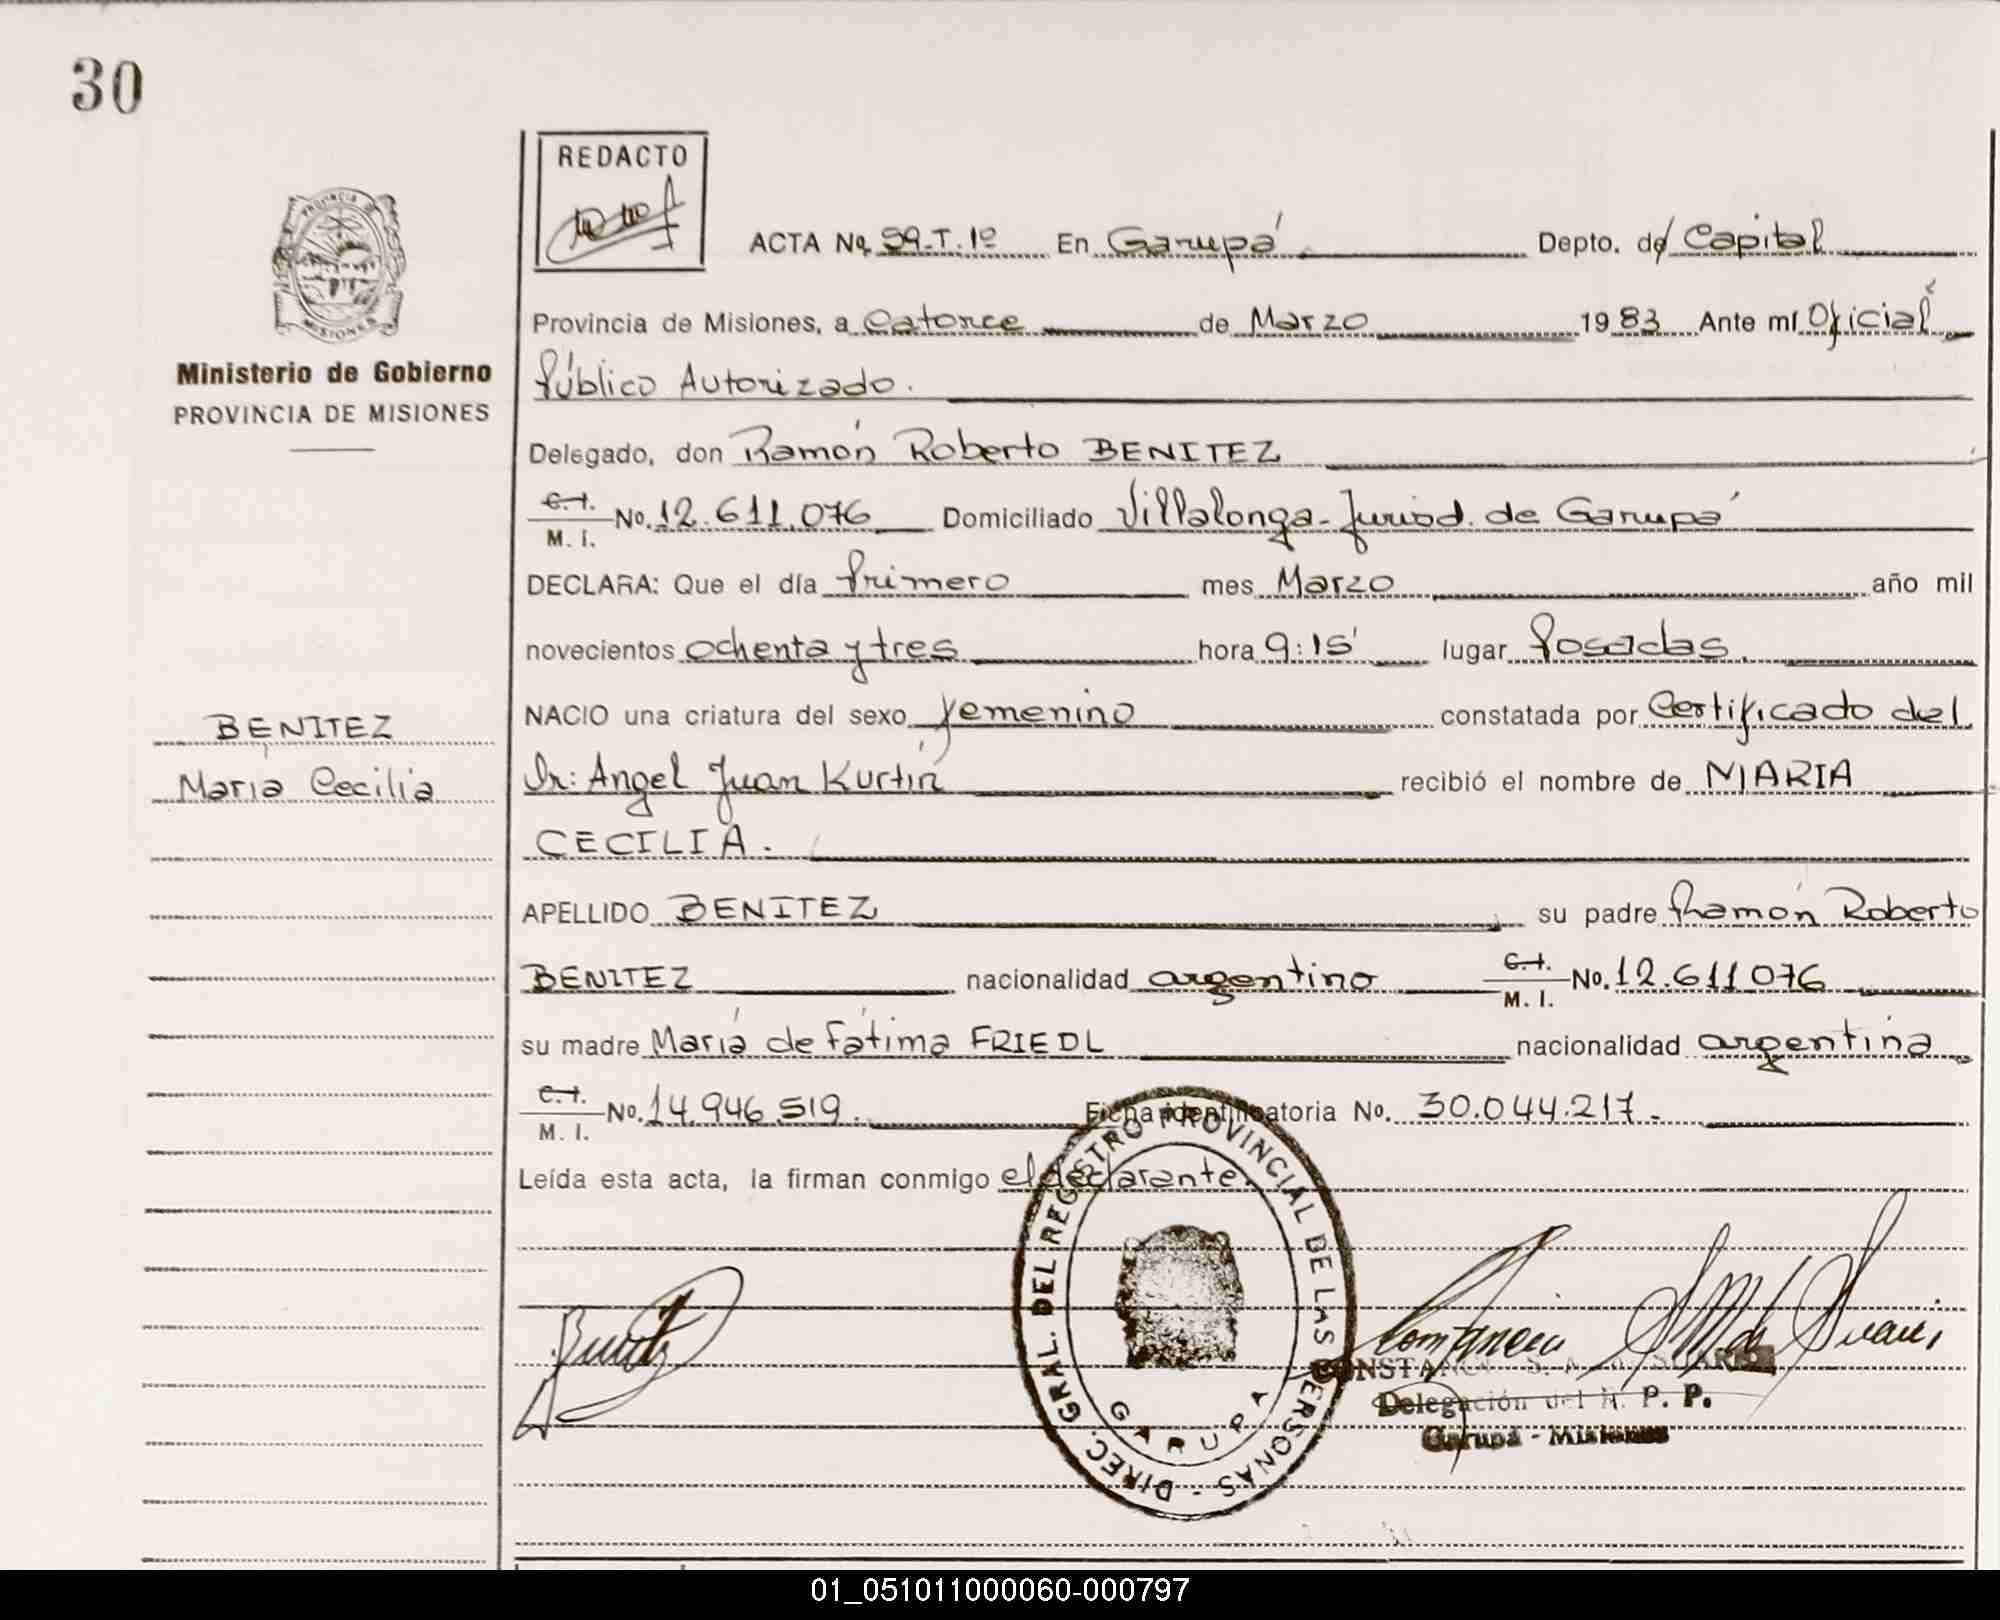 30
REDACTO
PROVINCIA DE
MISIONES
Ministerio de Gobierno
PROVINCIA DE MISIONES
BENITEZ
Maria Cecilia
ACTA No. 59-T.1º En Garupá Depto. de Capital
Provincia de Misiones, a Catorce de Marzo 1983 Ante mí Oficial
Público Autorizado.
Delegado, don Ramón Roberto BENITEZ
C.I. M. I. No. 12.611.076 Domiciliado Villalonga-Jurisd. de Garupá
DECLARA: Que el día Primero mes Marzo año mil
novecientos ochenta y tres hora 9:15' lugar Posadas.
NACIO una criatura del sexo femenino constatada por Certificado del
Dr: Angel Juan Kurtin recibió el nombre de MARIA
CECILIA.
APELLIDO BENITEZ su padre Ramón Roberto
BENITEZ nacionalidad argentino C.I. M. I. No. 12.611076
su madre María de Fátima FRIEDL nacionalidad argentina
C.I. M. I. No. 14.946.519. Ficha identificatoria No. 30.044.217-
Leída esta acta, la firman conmigo el declarante.
DIREC. GRAL. DEL REGISTRO PROVINCIAL DE LAS PERSONAS -
GARUPA
Delegación del R. P. P.
Garupá - Misiones
01_051011000060-000797